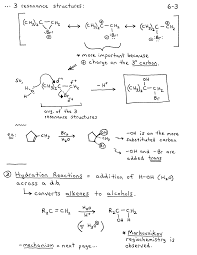 ... 3 resonance structures: 6-3
(CH3)2C—CH2 ↔ (CH3)2C—CH2 ↔ (CH3)2C—CH2
Br Br Br
* more important because
⊕ charge on the 3° carbon.
So,
H2O
(CH3)2C—CH2
Br
-H+
OH
(CH3)2C—CH2
Br
avg. of the 3
resonance structures
ex:
CH3
Br2
H2O
CH3
-OH is on the more
substituted carbon
-OH and -Br are
added trans
② Hydration Reactions = addition of H-OH (H2O)
across a d.b.
↳ converts alkenes to alcohols.
R2C=CH2
H2O
H+
R2C—CH2
OH H
* Markovnikov
regiochemistry is
observed.
-mechanism = next page...